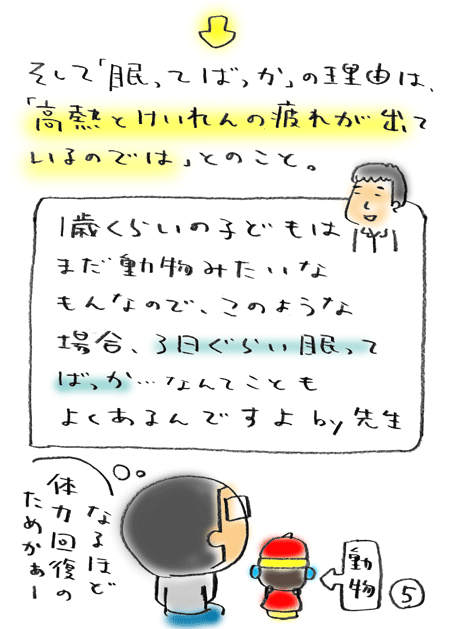 そして「眠ってばっか」の理由は、
「高熱とけいれんの疲れが出て
いるのでは」とのこと。
1歳くらいの子どもは
まだ動物みたいな
もんなので、このような
場合、3日ぐらい眠って
ばっか…なんてことも
よくあるんですよ by 先生
なるほど
体力回復の
ためかぁー
動物
5